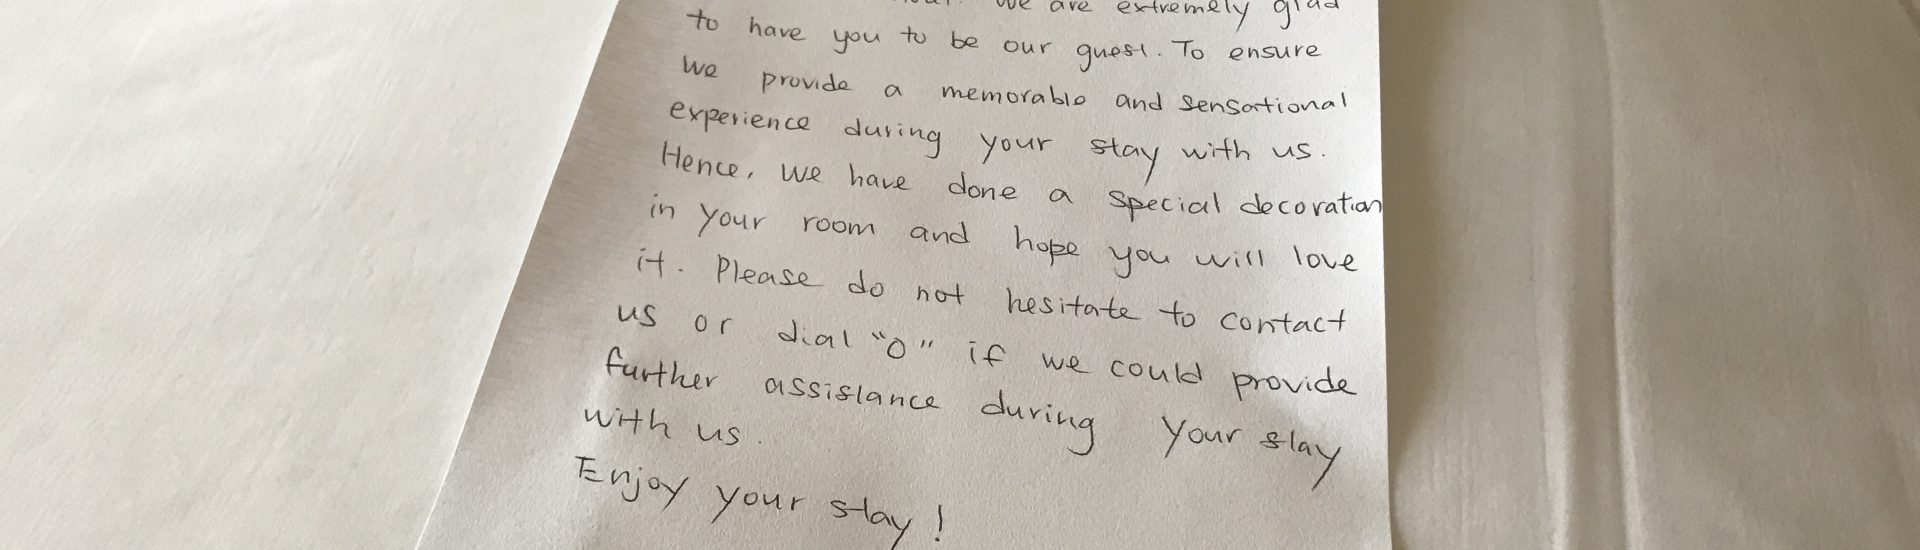 We are extremely glad
to have you to be our guest. To ensure
we provide a memorable and sensational
experience during your stay with us.
Hence, we have done a special decoration
in your room and hope you will love
it. Please do not hesitate to contact
us or dial "0" if we could provide
further assistance during your stay
with us.
Enjoy your stay!